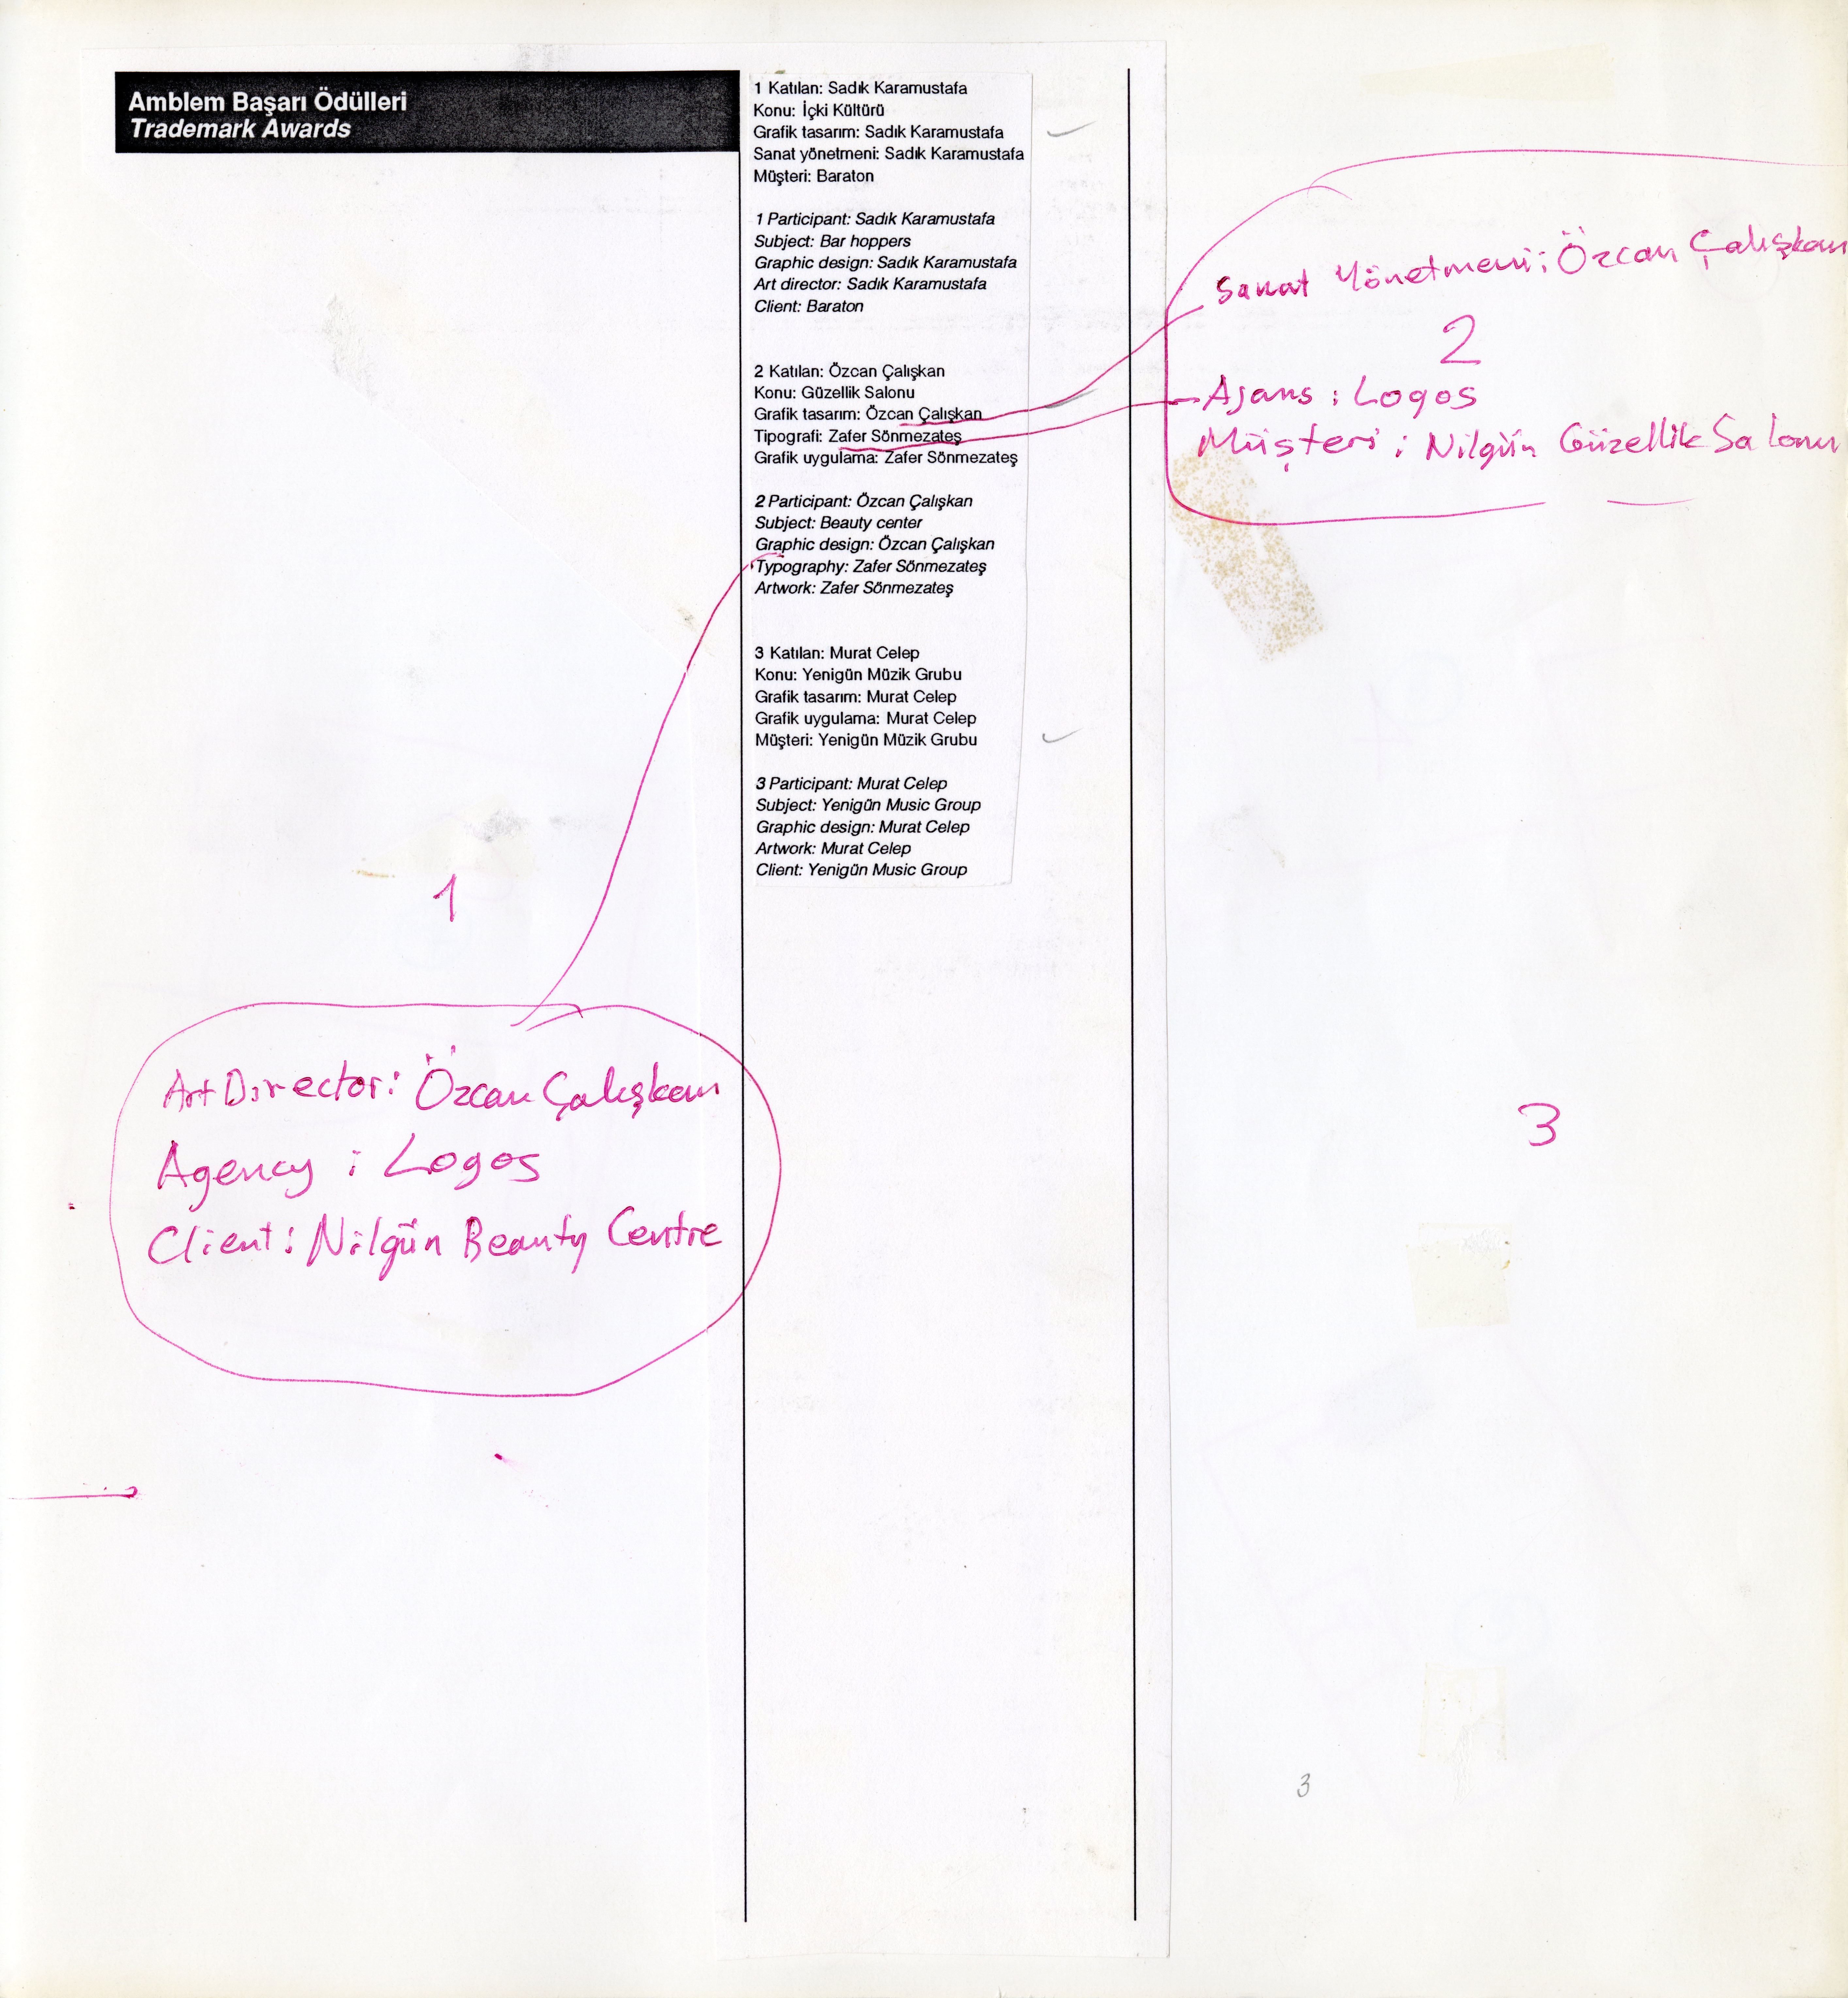 Amblem Başarı Ödülleri
Trademark Awards
1 Katılan: Sadık Karamustafa
Konu: İçki Kültürü
Grafik tasarım: Sadık Karamustafa
Sanat yönetmeni: Sadık Karamustafa
Müşteri: Baraton
1 Participant: Sadık Karamustafa
Subject: Bar hoppers
Graphic design: Sadık Karamustafa
Art director: Sadık Karamustafa
Client: Baraton
2 Katılan: Özcan Çalışkan
Konu: Güzellik Salonu
Grafik tasarım: Özcan Çalışkan
Tipografi: Zafer Sönmezateş
Grafik uygulama: Zafer Sönmezateş
2 Participant: Özcan Çalışkan
Subject: Beauty center
Graphic design: Özcan Çalışkan
Typography: Zafer Sönmezateş
Artwork: Zafer Sönmezateş
3 Katılan: Murat Celep
Konu: Yenigün Müzik Grubu
Grafik tasarım: Murat Celep
Grafik uygulama: Murat Celep
Müşteri: Yenigün Müzik Grubu
3 Participant: Murat Celep
Subject: Yenigün Music Group
Graphic design: Murat Celep
Artwork: Murat Celep
Client: Yenigün Music Group
Sanat Yönetmeni: Özcan Çalışkan
2
Ajans : Logos
Müşteri : Nilgün Güzellik Salonu
1
Art Director: Özcan Çalışkan
Agency : Logos
Client: Nilgün Beauty Centre
3
3